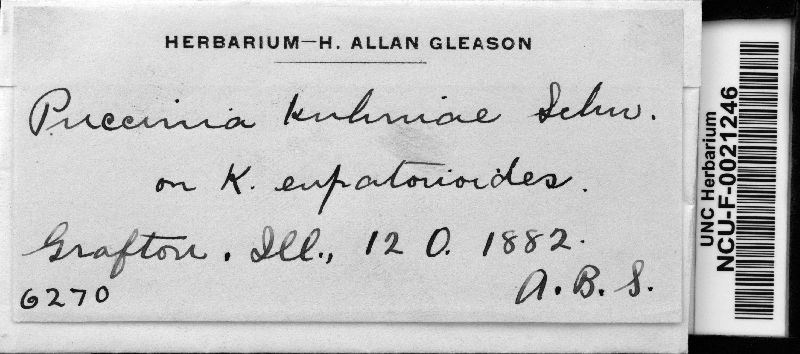 HERBARIUM—H. ALLAN GLEASON
Puccinia kuhniae Schw.
on K. eupatorioides.
Grafton, Ill., 12 O. 1882.
6270
A.B.S.
UNC Herbarium
NCU-F-0021246